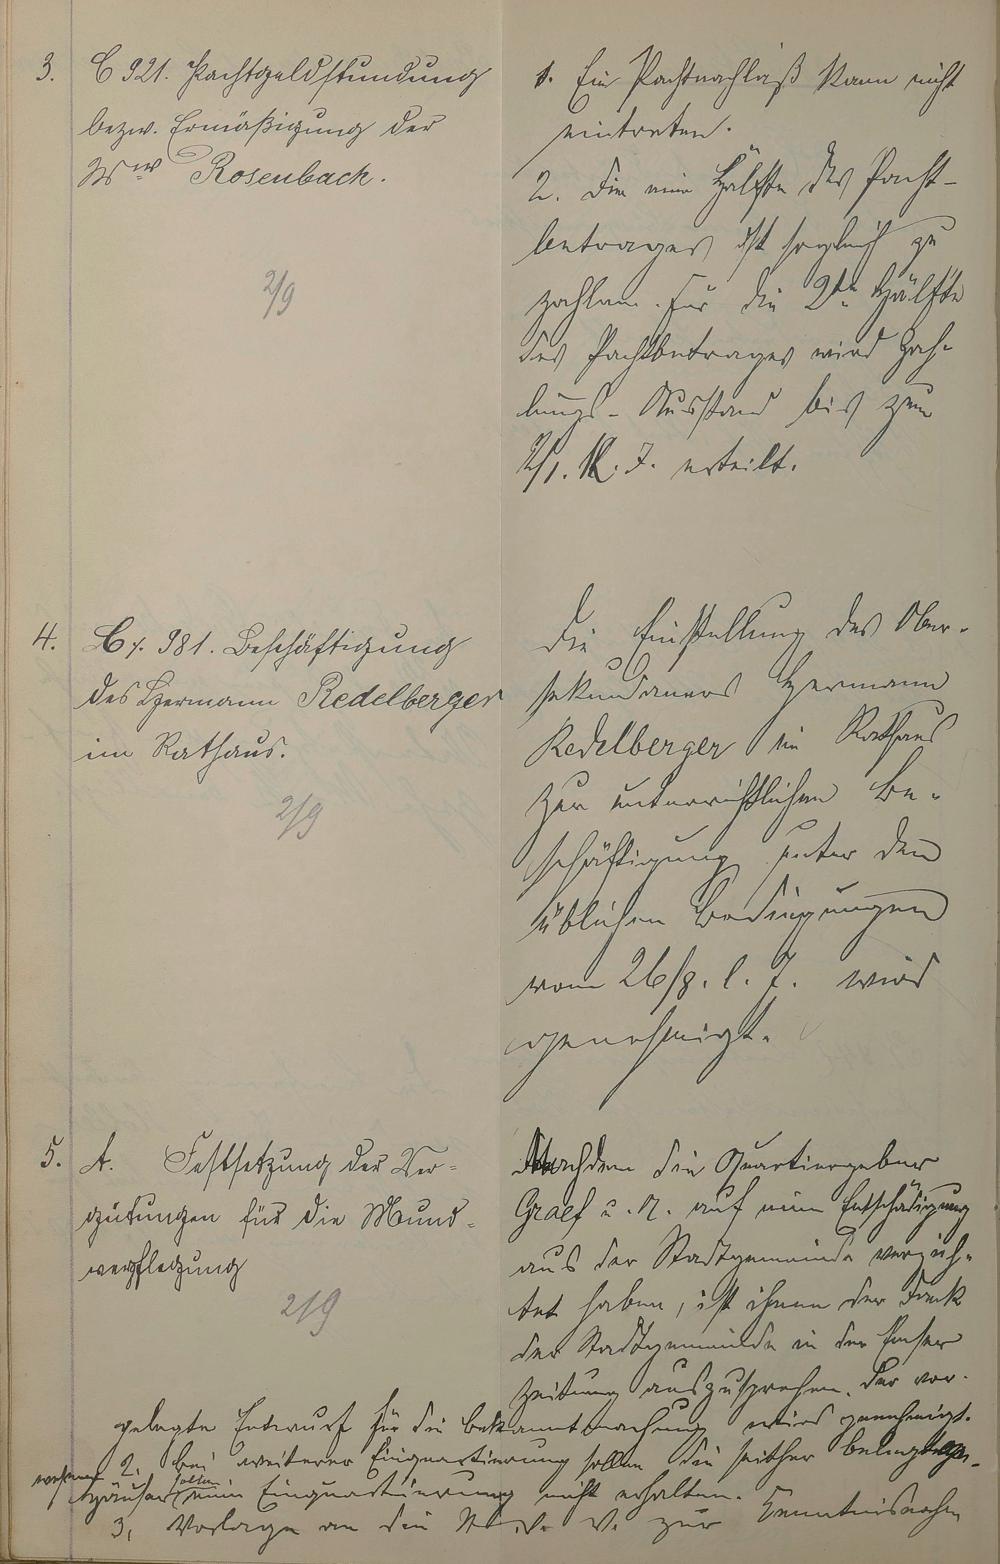 3. C 921. Pachtgeldstundung
bezw. Ermäßigung der
Wwe Rosenbach.
2/9
1. Ein Pachtnachlaß kann nicht
eintreten.
2. Die eine Hälfte des Pacht-
betrages ist sogleich zu
zahlen. Für die 2te Hälfte
des Pachtbetrages wird Zah-
lungs-Ausstand bis zum
1. J. erteilt.
4. C 981. Beschäftigung
des Hermann Redelberger
im Rathaus.
2/9
Die Einstellung des Ober-
sekundaners Hermann
Redelberger im Rathaus
zur unterrichtlichen Be-
schäftigung unter den
üblichen Bedingungen
vom 26/8. l. J. wird
genehmigt.
5. A. Festsetzung der Ver-
gütungen für die Mund-
verpflegung
2/9
Nachdem die Quartiergeber
Graef u. A. auf eine Entschädigung
aus der Stadtgemeinde verzich-
tet haben, ist ihnen der Dank
der Stadtgemeinde in der Emser
Zeitung auszusprechen. Der vor-
gelegte Entwurf für die Bekanntmachung wird genehmigt.
2. bei weiterer Einquartierung sollen die seither belegt
Häuser keine Einquartierung nicht erhalten.
3, Vorlage an die St. V. V. zur Kenntnisnahme